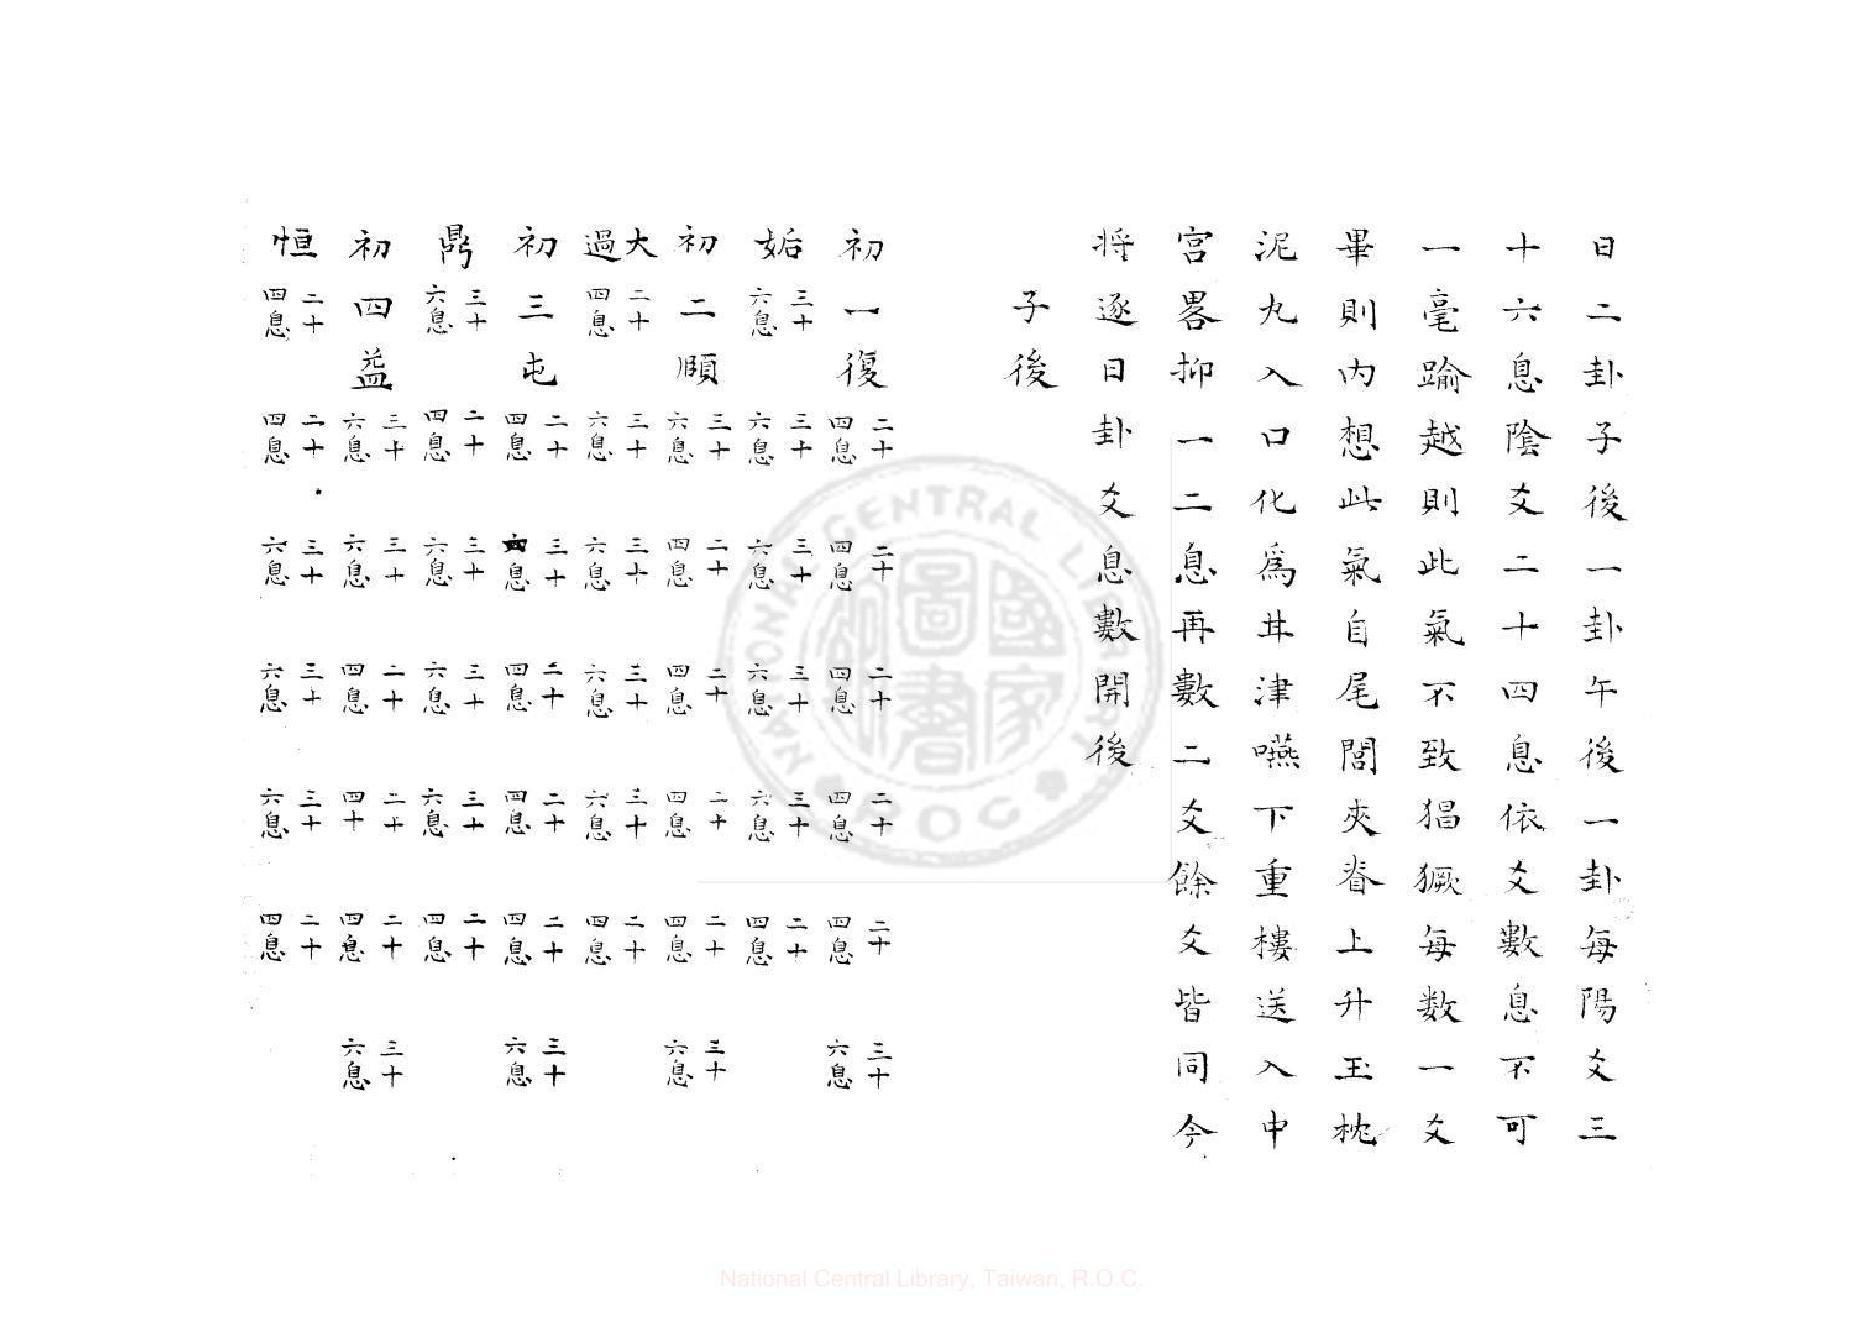 日二卦子後一卦午後一卦每陽爻三
十六息陰爻二十四息依爻數息不可
一毫踰越則此氣不致猖獗每数一爻
畢則内想此氣自尾閭夾脊上升玉枕
泥丸入口化爲甘津嚥下重樓送入中
宮畧抑一二息再數二爻餘爻皆同今
將逐日卦爻息數開後
子後
初一復 二十四息 二十四息 二十四息 二十四息 二十四息 三十六息
姤 三十六息 三十六息 三十六息 三十六息 三十六息 二十四息
初二頤 三十六息 二十四息 二十四息 二十四息 二十四息 三十六息
大過 二十四息 三十六息 三十六息 三十六息 三十六息 二十四息
初三屯 二十四息 三十六息 二十四息 二十四息 二十四息 三十六息
鼎 三十六息 二十四息 三十六息 三十六息 三十六息 二十四息
初四益 三十六息 三十六息 二十四息 二十四十 二十四息 三十六息
恒 二十四息 二十四息 三十六息 三十六息 三十六息 二十四息
NATIONAL CENTRAL LIBRARY
ROC
國家圖書館
National Central Library, Taiwan, R.O.C.